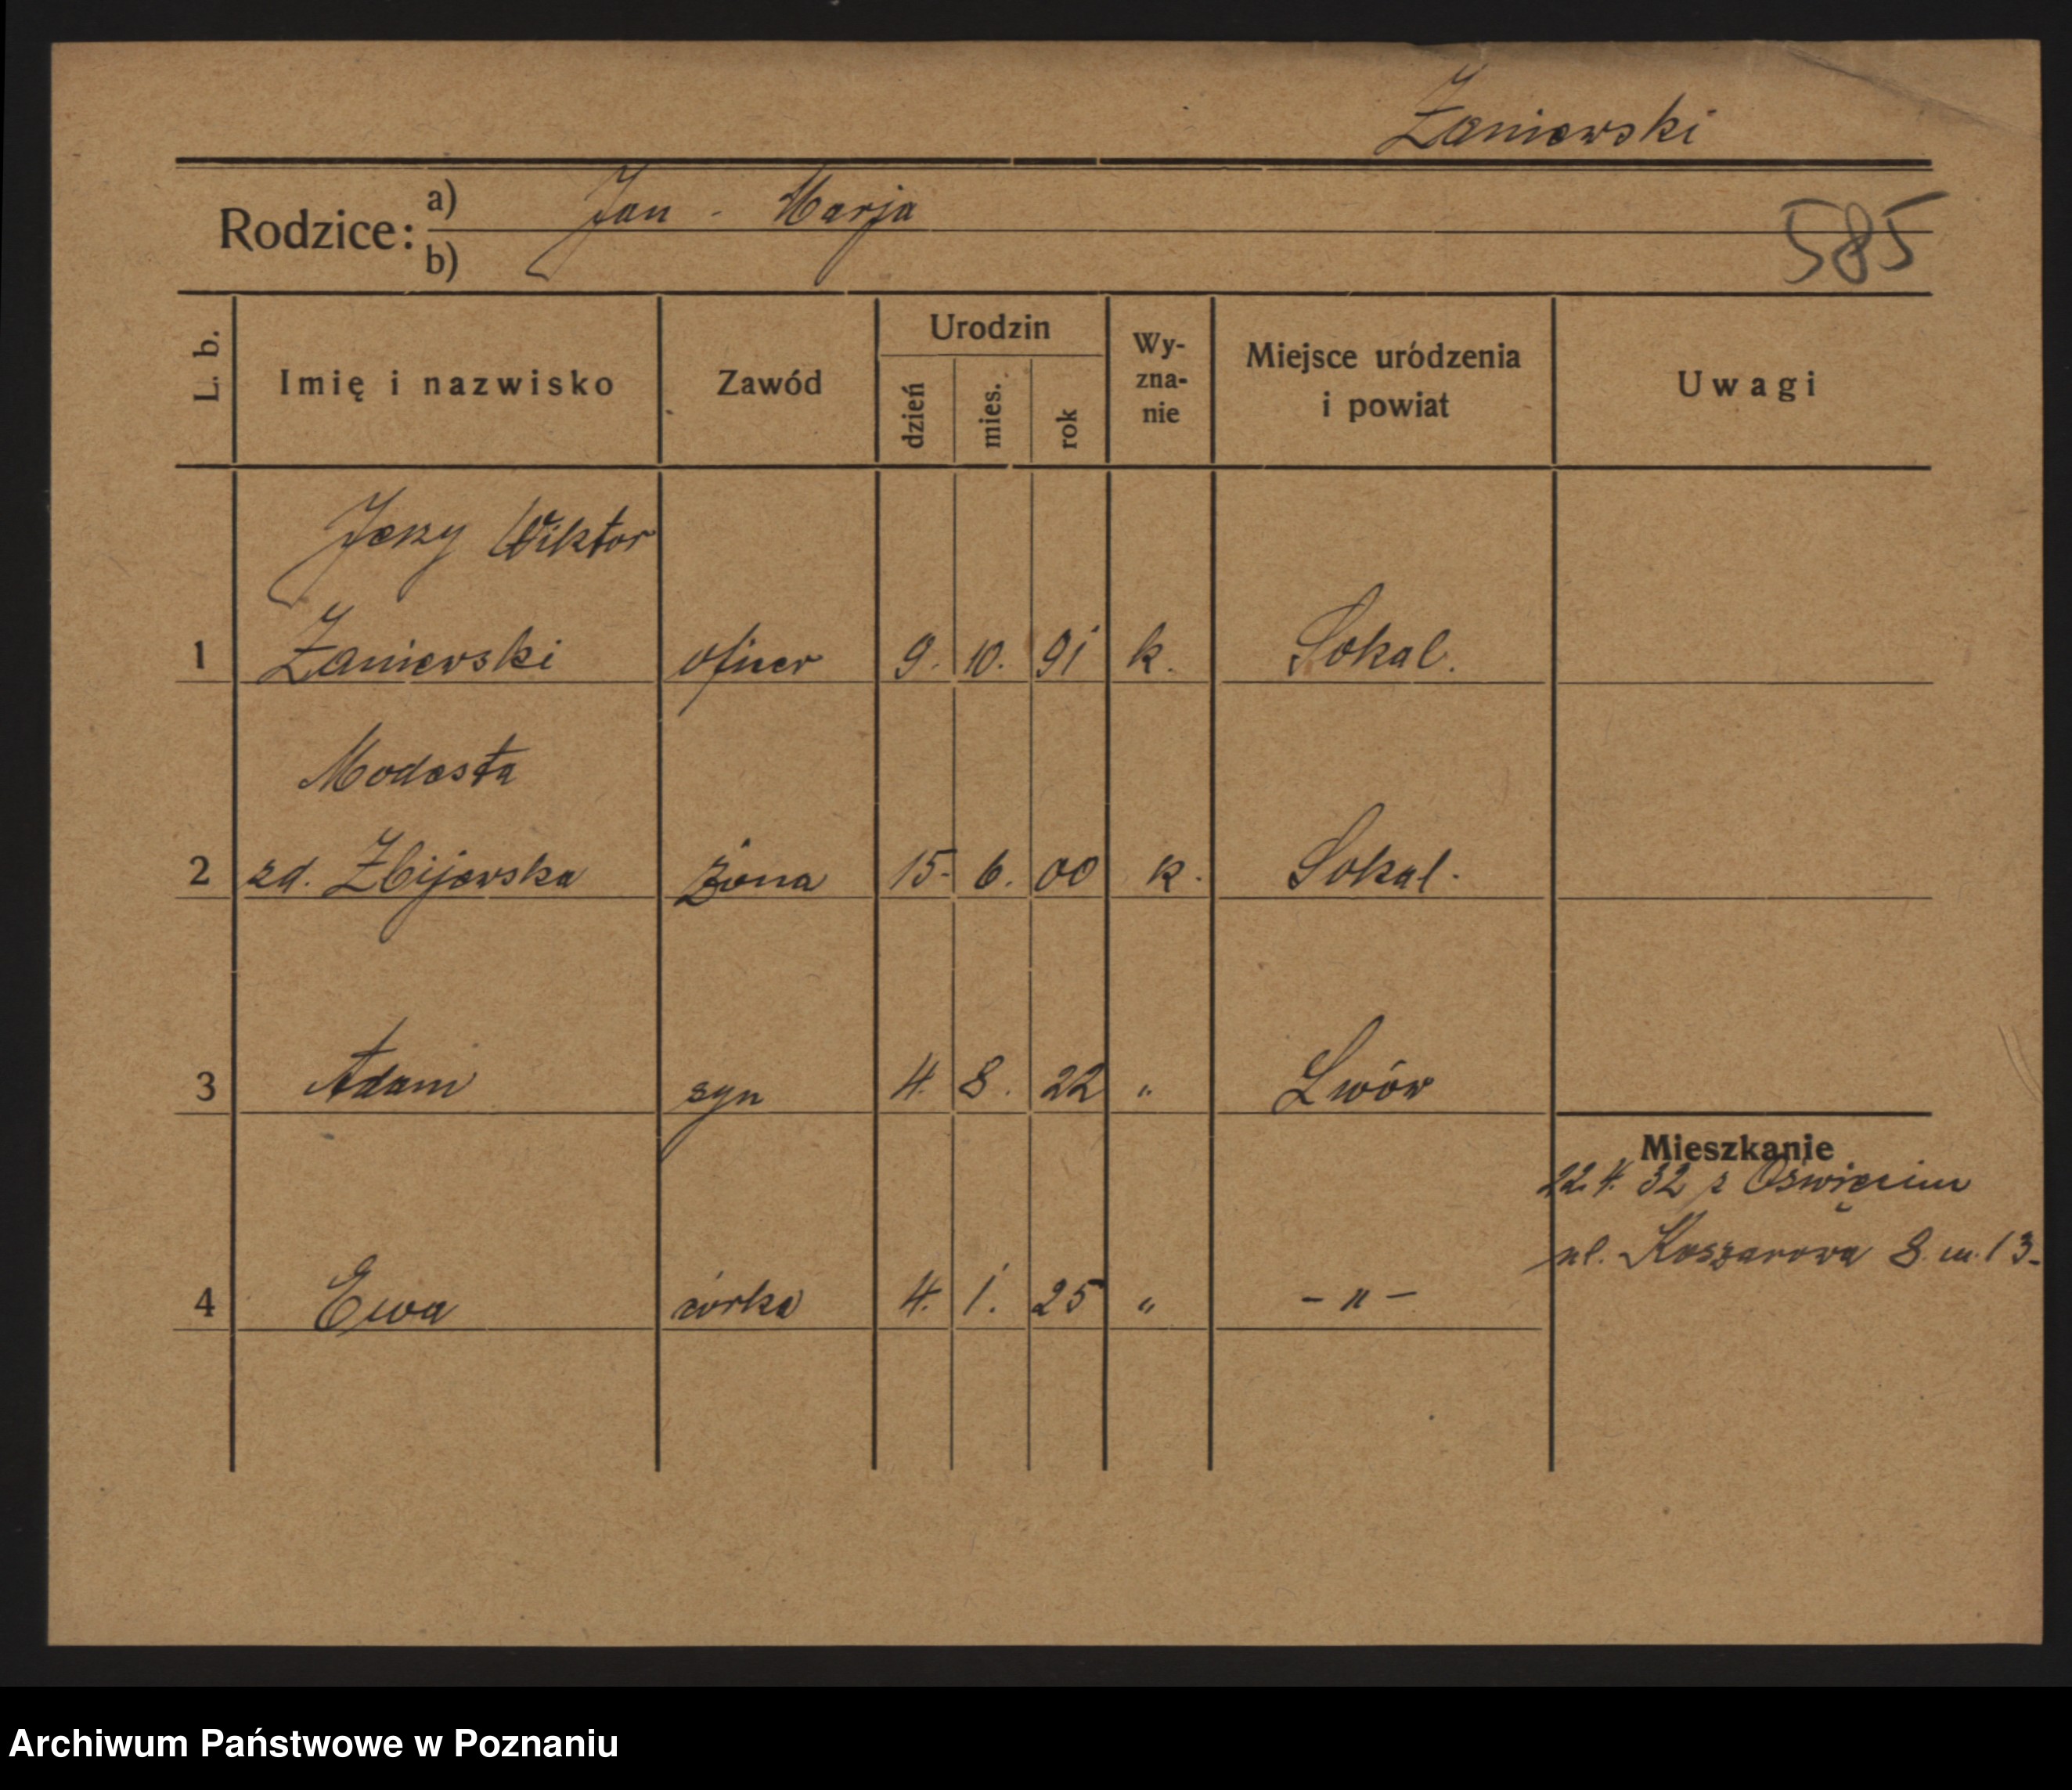 Zaniewski
Rodzice: a) Jan - Marja
b)
585
L. b. Imię i nazwisko Zawód Urodzin dzień mies. rok Wy-zna-nie Miejsce uródzenia i powiat Uwagi
Jerzy Wiktor
1 Zaniewski oficer 9. 10. 91 k. Sokal.
Modesta
2 zd. Zbijewska żona 15. 6. 00 k. Sokal.
3 Adam syn 4. 8. 22 " Lwów
Mieszkanie
22.4. 32 z Oświęcim
ul. Koszarowa 8. m. 13.
4 Ewa córka 4. 1. 25 " - " -
Archiwum Państwowe w Poznaniu